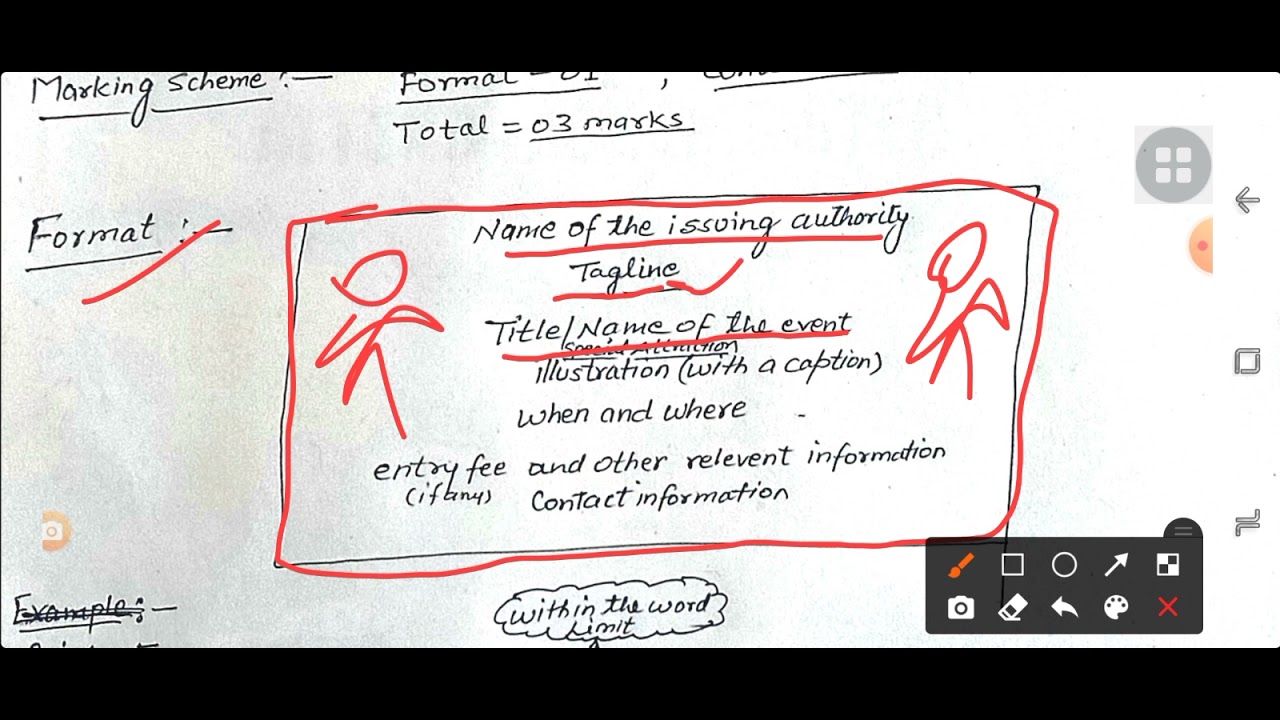 Marking Scheme :—
Format = 01 ,
Total = 03 marks
Format :—
Name of the issuing authority
Tagline
Title/Name of the event
Special Attraction
illustration (with a caption)
when and where
entry fee and other relevent information
(if any) Contact information
Example :—
within the word
Limit